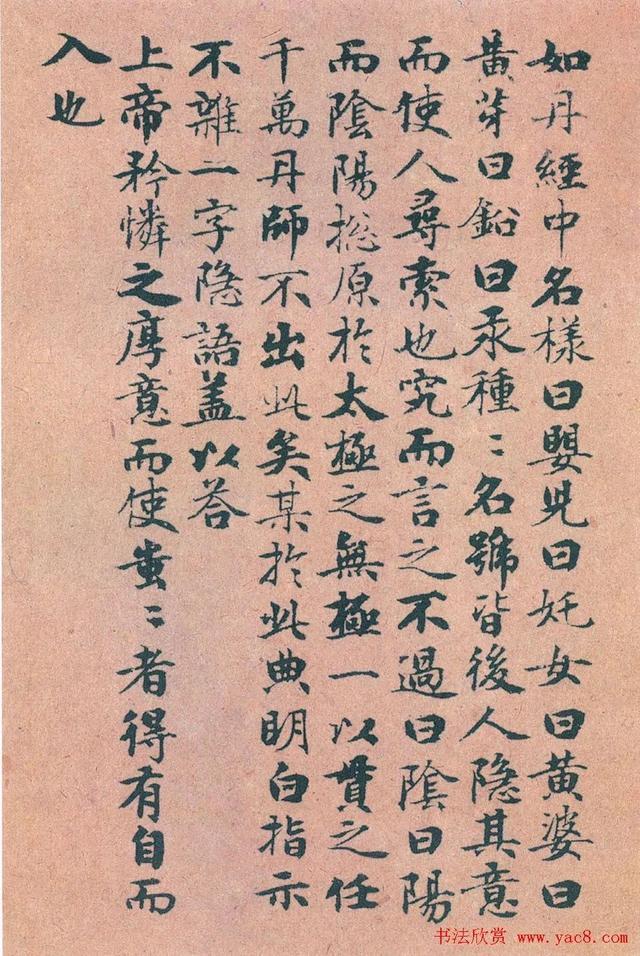 如丹經中名樣曰嬰児曰奼女曰黄婆曰
黄芽曰鉛曰汞種〻名號皆後人隠其意
而使人尋索也究而言之不過曰陰曰陽
而陰陽捴原於太極之無極一以貫之任
千萬丹師不出此矣某於此典明白指示
不離一字隠語盖以荅
上帝矜憐之厚意而使蚩〻者得有自而
入也
书法欣赏 www.yac8.com